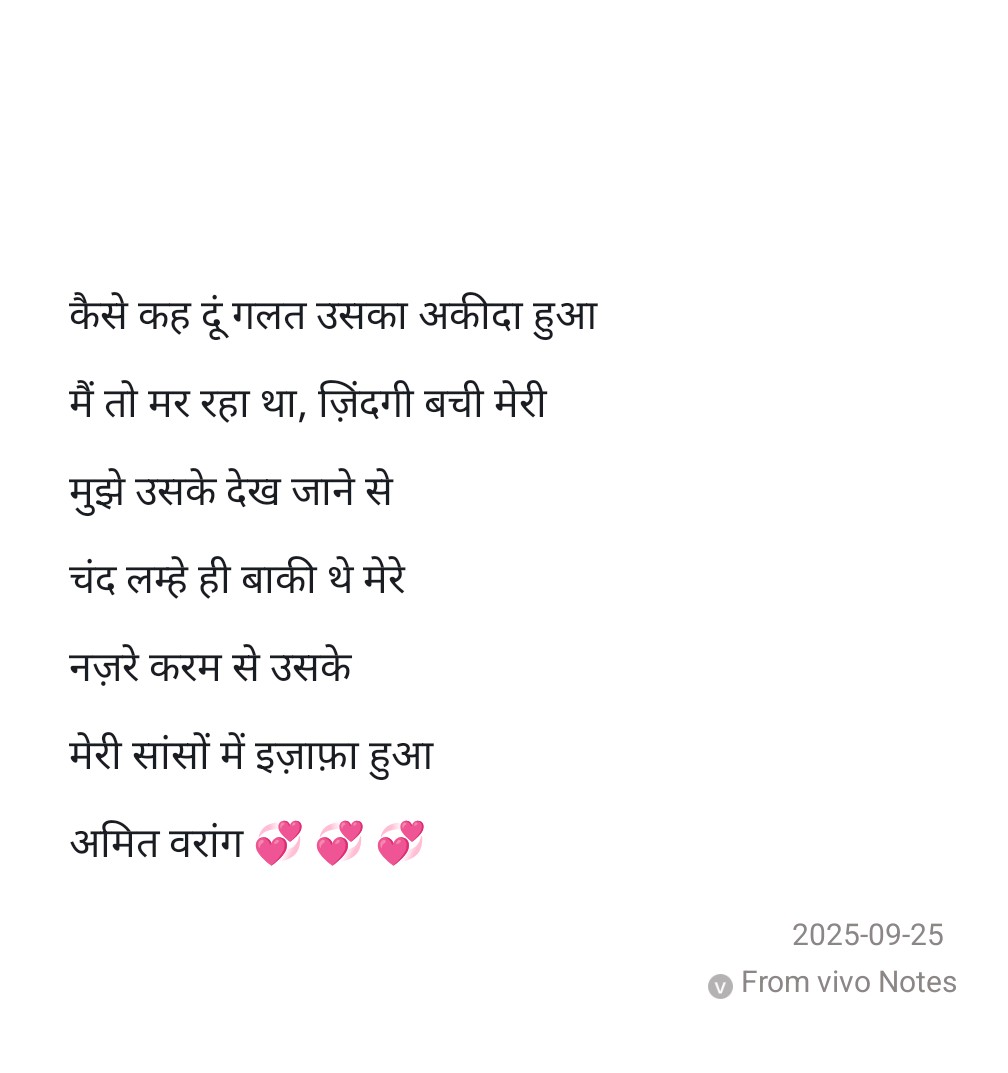 कैसे कह दूं गलत उसका अकीदा हुआ
मैं तो मर रहा था, ज़िंदगी बची मेरी
मुझे उसके देख जाने से
चंद लम्हे ही बाकी थे मेरे
नज़रे करम से उसके
मेरी सांसों में इज़ाफ़ा हुआ
अमित वरांग 💞 💞 💞
2025-09-25
v From vivo Notes